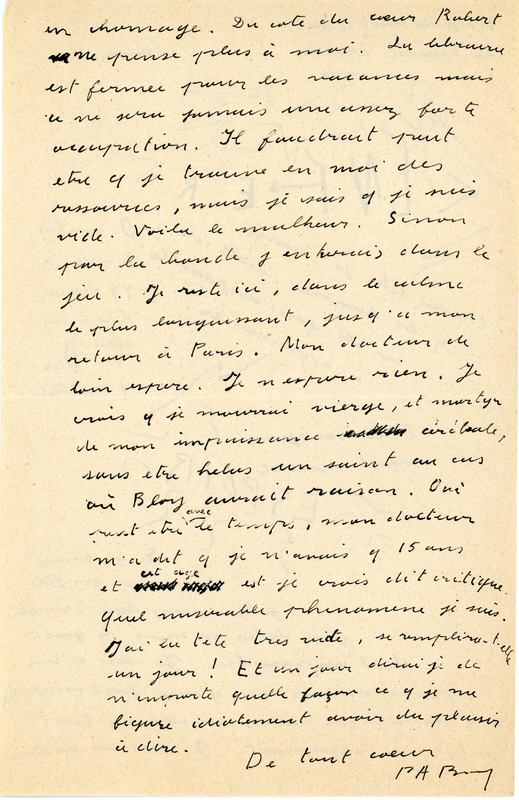 en homage. Du cote du cœur Robert
ne pense plus à moi. La librairie
est fermee pour les vacances mais
ce ne sera jamais une assez forte
occupation. Il faudrait peut
etre q je trouve en moi des
ressources, mais je sais q je suis
vide. Voila le malheur. Sinon
par la bande j entrerais dans le
jeu. Je reste ici, dans le calme
le plus languissant, jusq'a mon
retour à Paris. Mon docteur de
loin espere. Je n espere rien. Je
crois q je mourrai vierge, et martyr
de mon impuissance cérébrale,
sans etre helas un saint au cas
où Bloy aurait raison. Oui
peut etre avec le temps, mon docteur
m'a dit q je n'avais q 15 ans
et cet age est je crois dit critique.
Quel miserable phenomene je suis.
J'ai la tete tres vide, se remplira-t-elle
un jour! Et un jour dirai je de
n'importe quelle façon ce q je me
figure idiotement avoir du plaisir
à dire.
De tout cœur
P A